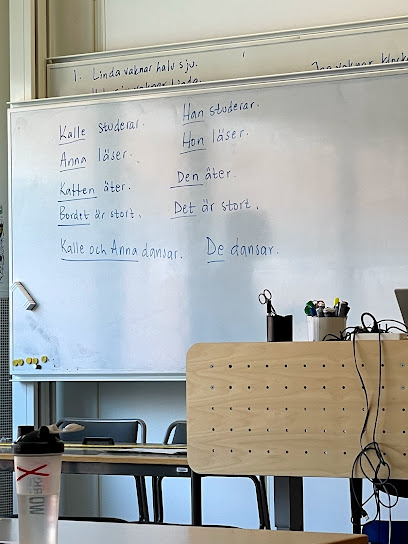 1. Linda vaknar halv sju.
Kalle studerar. Han studerar.
Anna läser. Hon läser.
Katten äter. Den äter.
Bordet är stort. Det är stort.
Kalle och Anna dansar. De dansar.